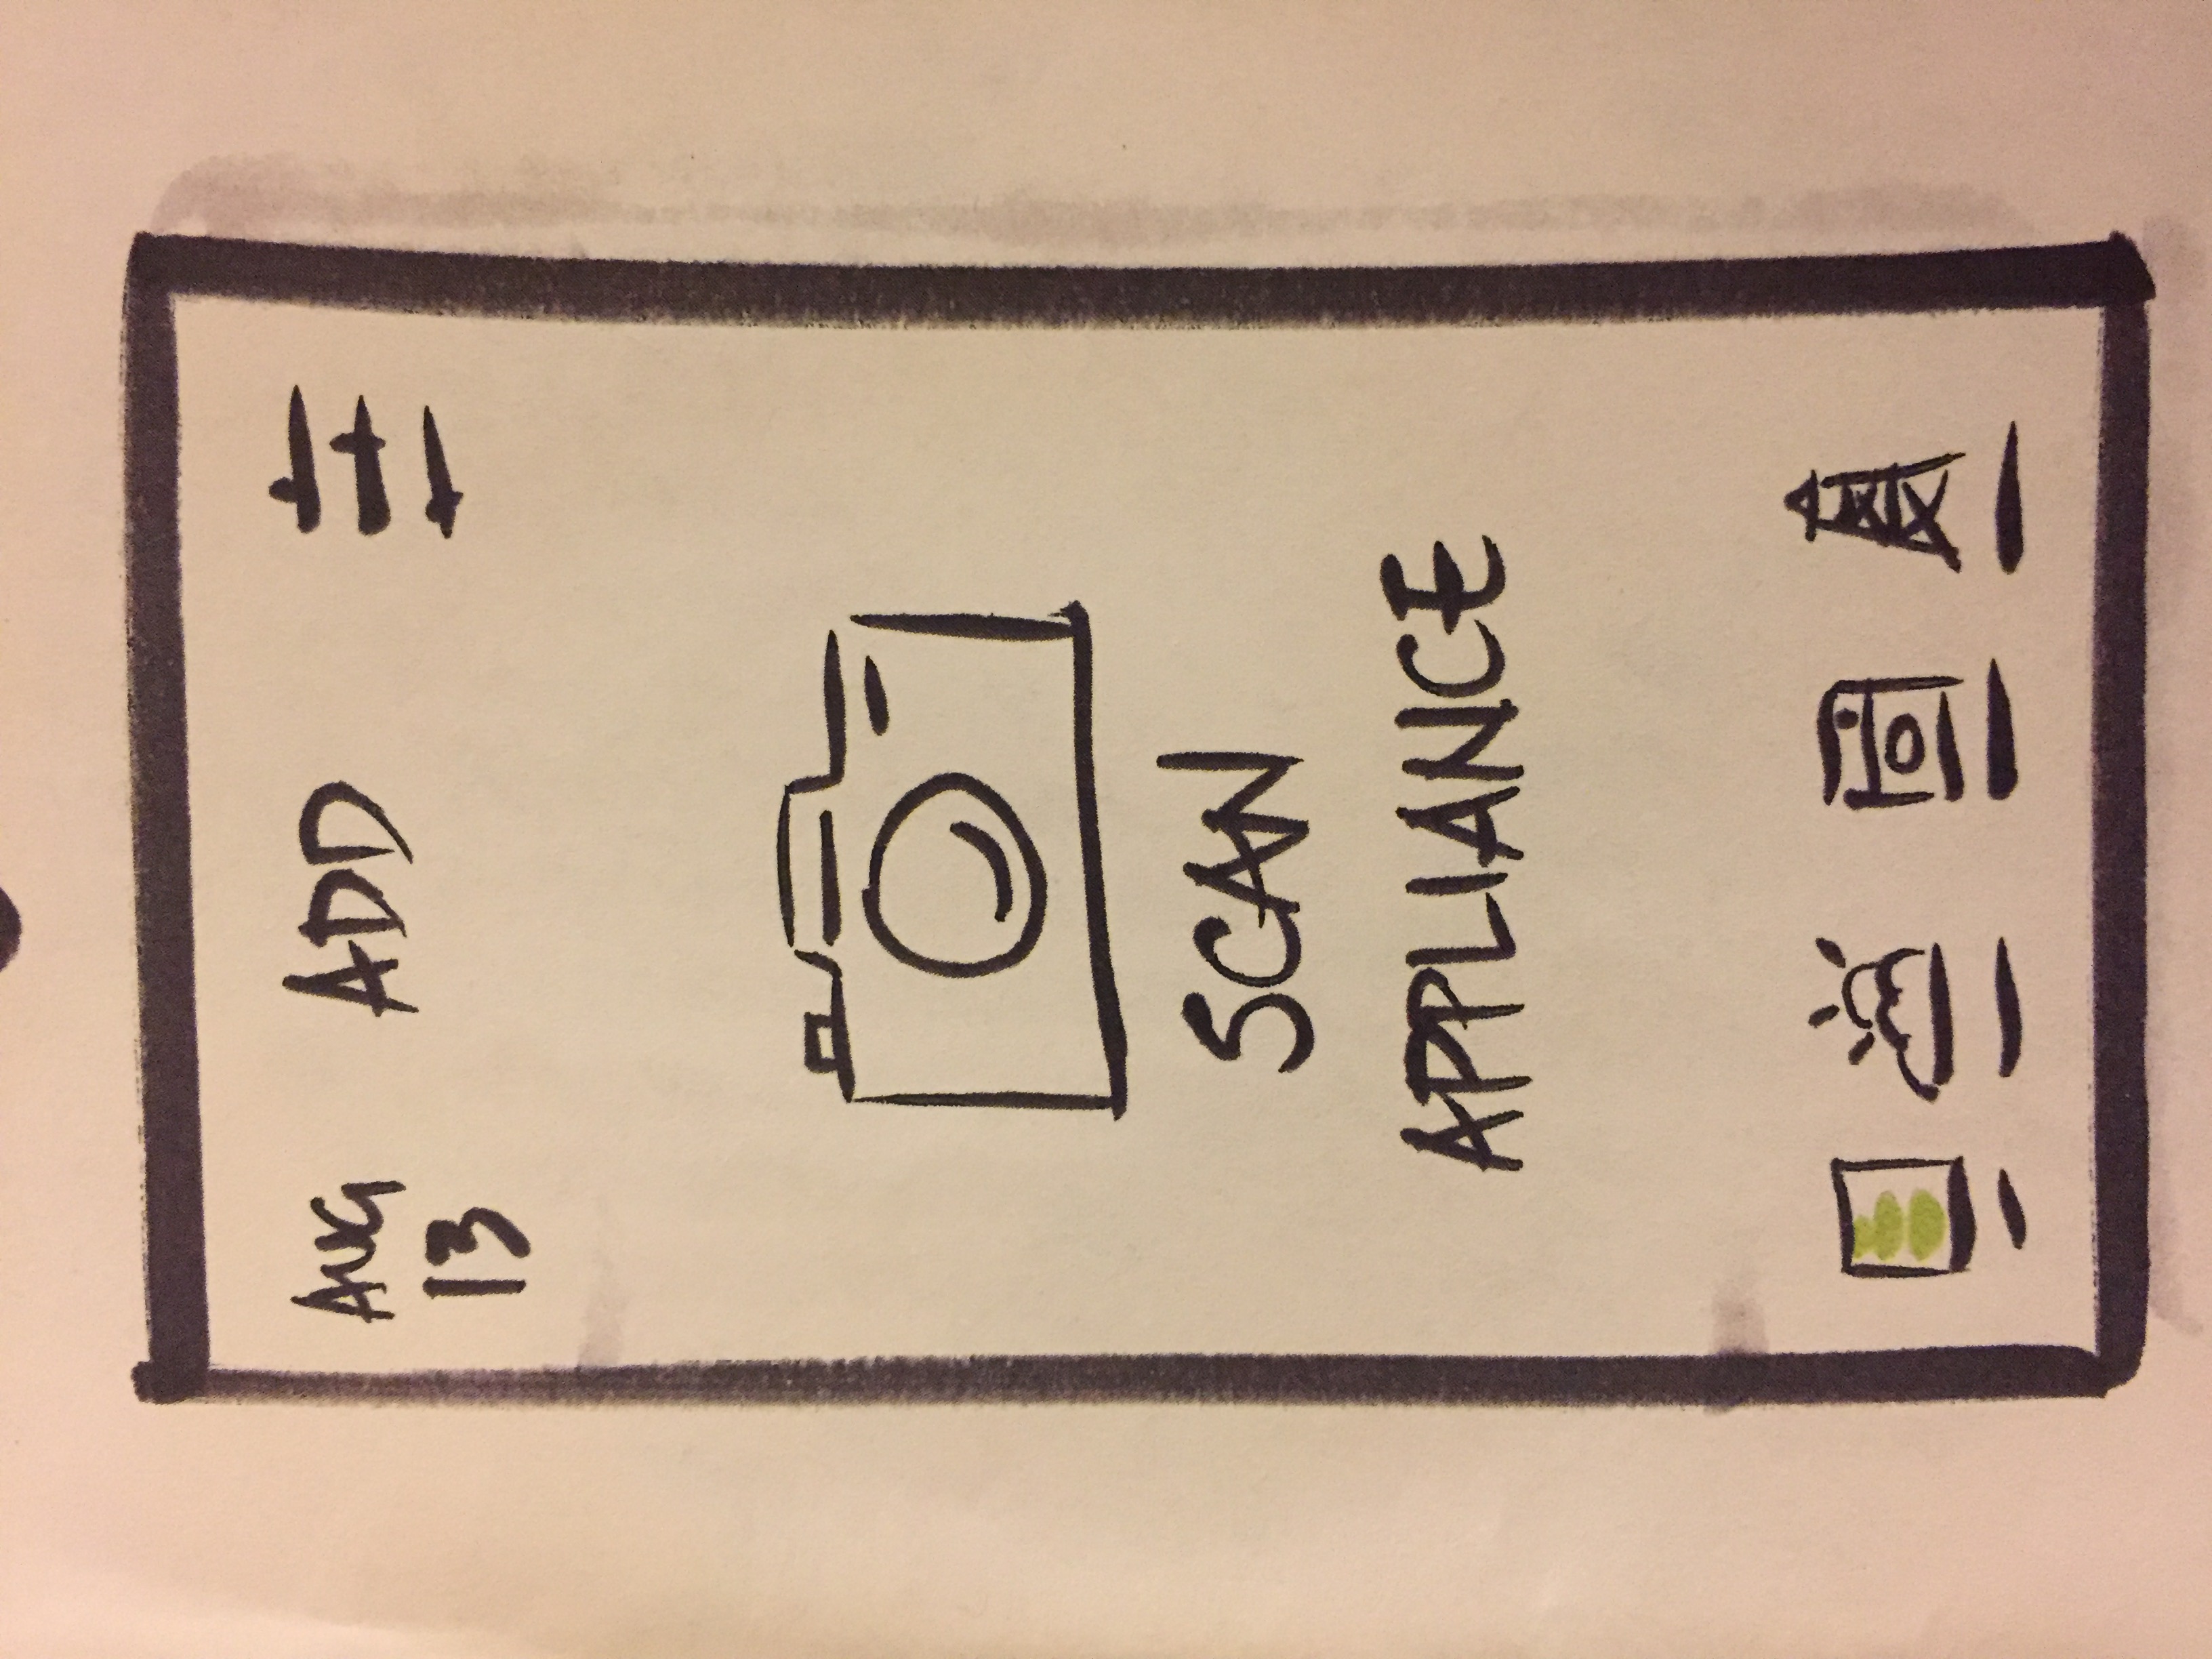 AUG
13
ADD
SCAN
APPLIANCE